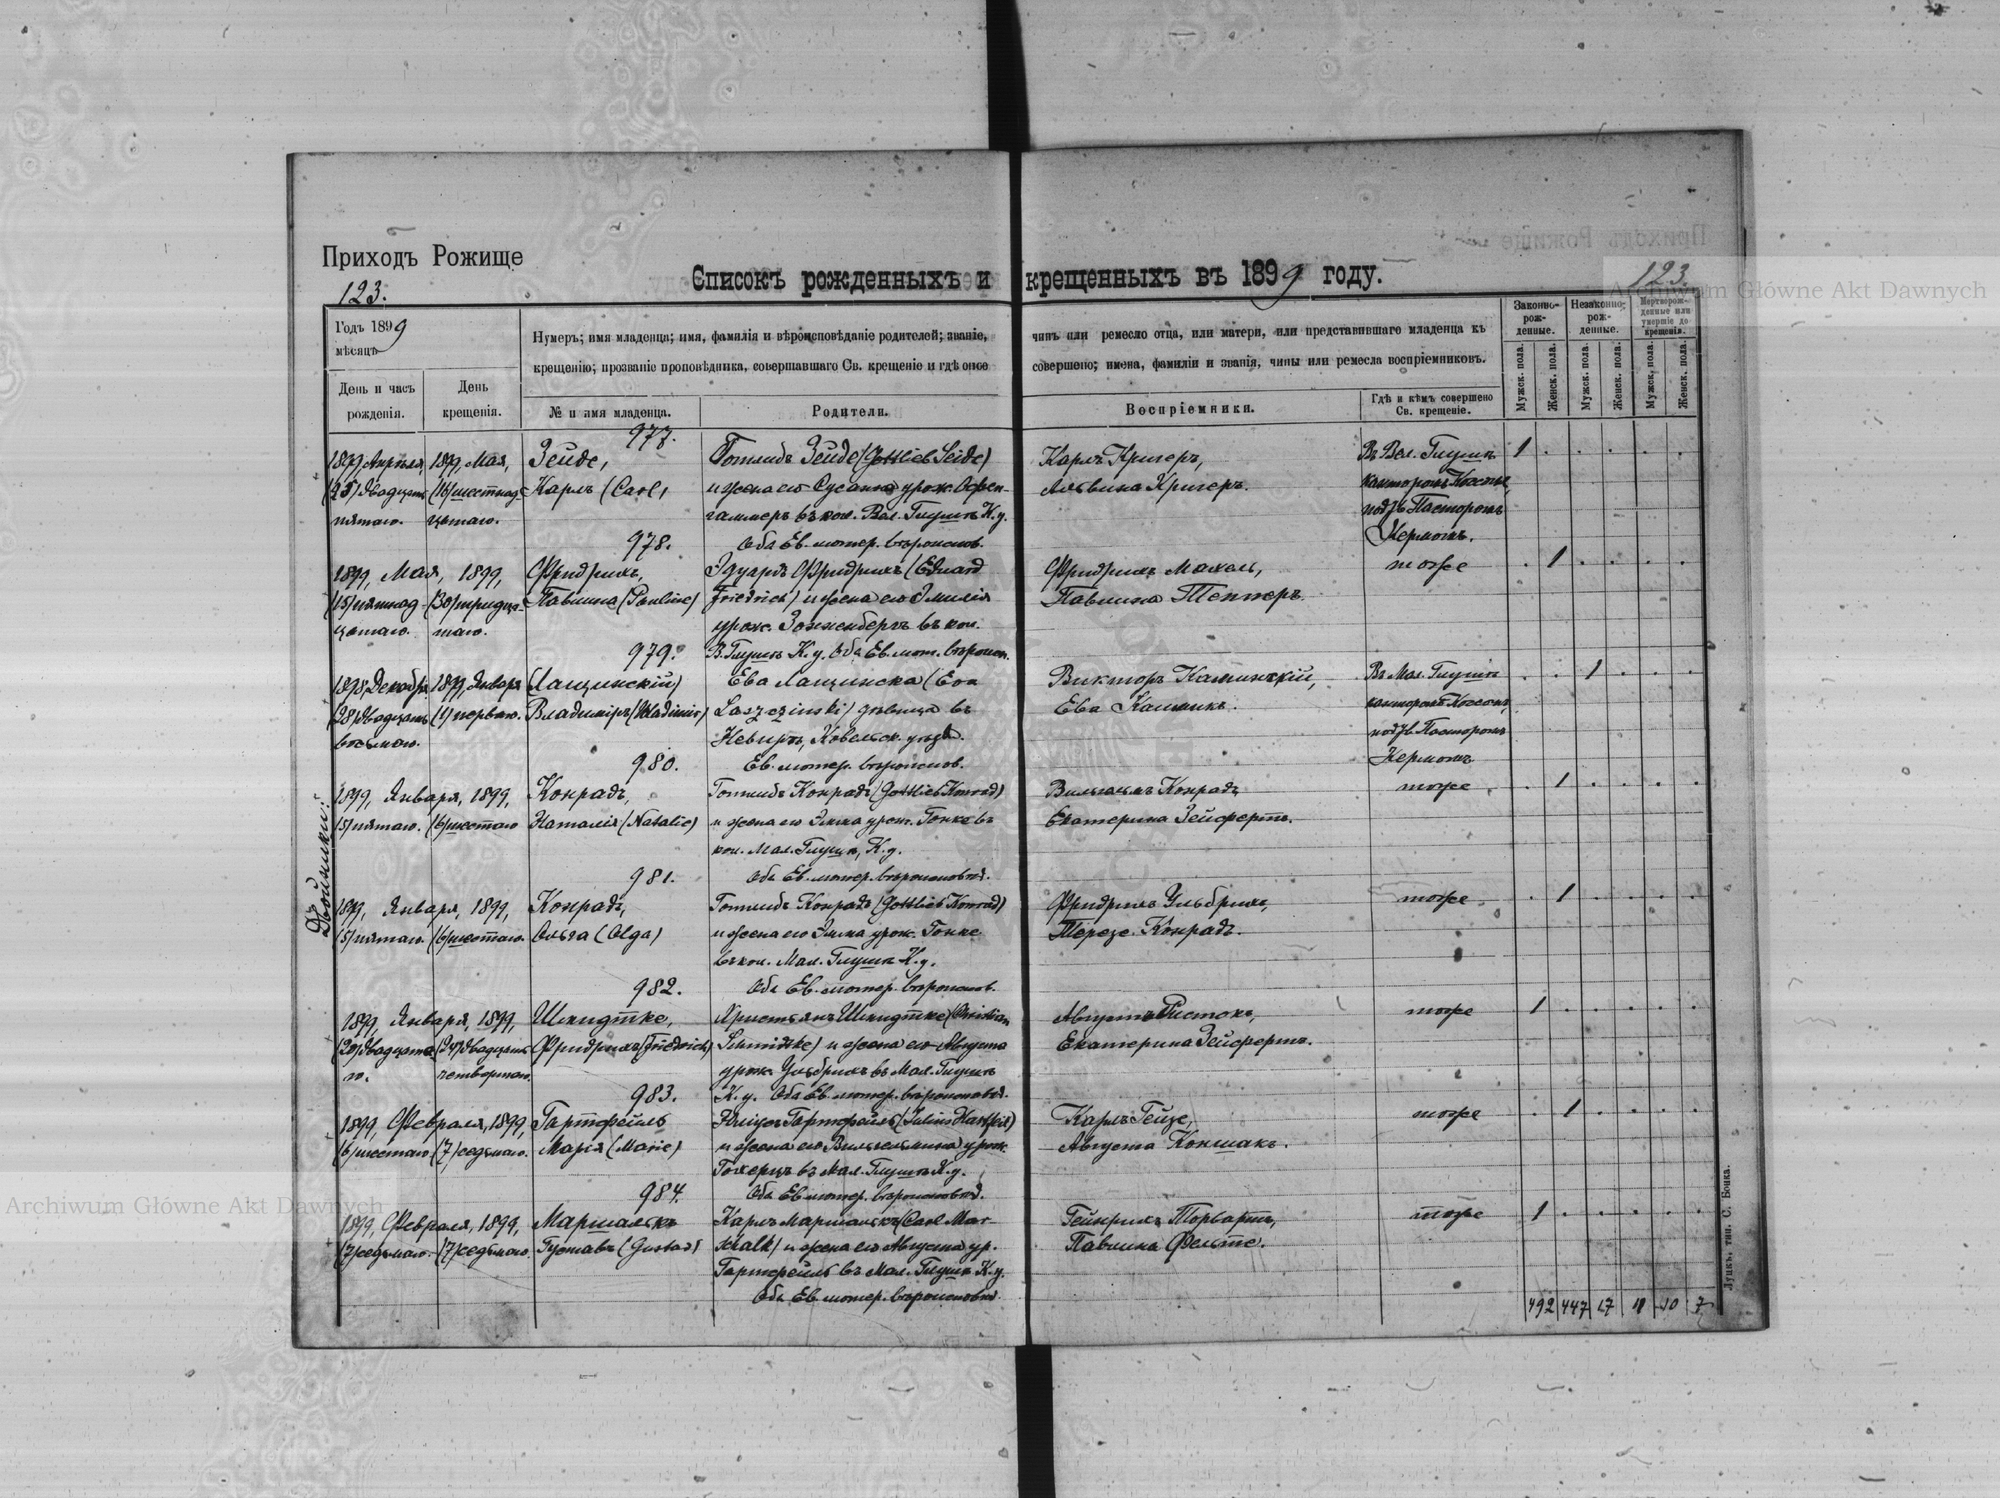 Приходъ Рожище
123.
Списокъ рожденныхъ и крещенныхъ въ 1899 году.
123.
Archiwum Główne Akt Dawnych
Годъ 1899
мѣсяцъ
День и часъ рожденія.
День крещенія.
Нумеръ; имя младенца; имя, фамилія и вѣроисповѣданіе родителей; званіе,
крещенію; прозваніе проповѣдника, совершавшаго Св. крещеніе и гдѣ оное
чинъ или ремесло отца, или матери, или представившаго младенца къ
совершено; имена, фамиліи и званія, чины или ремесла воспріемниковъ.
№ и имя младенца.
Родители.
Воспріемники.
Гдѣ и кѣмъ совершено Св. крещеніе.
Законно-рож-денные.
Незаконно-рож-денные.
Мертворож-денные или умершіе до крещенія.
Мужск. пола.
Женск. пола.
Мужск. пола.
Женск. пола.
Мужск. пола.
Женск. пола.
977.
1899, Апрѣля, 1899, Мая, Зейде, Готлибъ Зейде (Gottlieb Seide) Карлъ Кригеръ, Въ Вел. Глушѣ 1
(25) двадцать (16) шестнад- Карлъ (Carl) и жена его Сусанна урож. Альвина Кригеръ. канторомъ
пятаго. цатаго. въ кол. Вел. Глушѣ К.у. подзв. Пасторомъ
978. Оба Ев. лютер. вѣроиспов. Кермомъ.
1899, Мая, 1899, Фридрихъ, Эдуардъ Фридрихъ (Eduard Фридрихъ Махель, тоже 1
(15) пятнад- (30) тридца- Павлина (Pauline) Friedrich) и жена его Эмилія Павлина Теппер
цатаго. таго. урож. Зонненбергъ въ кол.
979. В. Глушѣ К.у. Оба Ев. лют. вѣроисп.
1898, Декабря 1899, Января (Лащинскій) Ева Лащинска (Eva Викторъ Каминскій, Въ Мал. Глушѣ 1
(28) двадцать (1) перваго. Владиміръ (Wladimir) Laszczinski) дѣвица въ Ева канторомъ
восьмаго. Ковельск. уѣзда. подзв. Пасторомъ
980. Ев. лютер. вѣроиспов. Кермомъ
1899, Января, 1899, Конрадъ, Готлибъ Конрадъ (Gottlieb Konrad) Вильгельмъ Конрадъ, тоже 1
(5) пятаго. (6) шестаго Наталія (Natalie) и жена его Эмма урож. Гонке въ Екатерина Зейфертъ.
кол. Мал. Глушѣ, К.у.
981. Оба Ев. лютер. вѣроисповѣд.
Двойники:
1899, Января, 1899, Конрадъ, Готлибъ Конрадъ (Gottlieb Konrad) Фридрихъ Ульбрихъ, тоже 1
(5) пятаго. (6) шестаго. Ольга (Olga) и жена его Эмма урож. Гонке Терезе Конрадъ.
въ кол. Мал. Глушѣ К.у.
982. Оба Ев. лютер. вѣроиспов.
1899, Января, 1899, Шмидтке, Христьянъ Шмидтке (Christian Августъ Ристокъ, тоже 1
(20) двадцата- (24) двадцать Фридрихъ (Friedrich) Schmidtke) и жена его Августа Екатерина Зейфертъ.
го. четвертаго. урож. Ульбрихъ въ Мал. Глушѣ
983. К.у. Оба Ев. лютер. вѣроисповѣд.
1899, Февраля, 1899, Гартфейль Юліусъ Гартфейль (Julius Hartfeil) Карлъ Гейзе, тоже 1
(6) шестаго. (7) седьмаго. Марія (Marie) и жена его Вильгельмина урож. Августа Коншакъ.
въ Мал. Глушѣ К.у.
984. Оба Ев. лютер. вѣроисповѣд.
1899, Февраля, 1899, Маршалькъ Карлъ Маршалькъ (Carl Mar- Гейнрихъ Торвартъ, тоже 1
(7) седьмаго. (7) седьмаго. Густавъ (Gustav) schalk) и жена его Августа ур. Павлина Фельте.
Гартфейль въ Мал. Глушѣ К.у.
Оба Ев. лютер. вѣроисповѣд.
492 447 17 18 10 7
Луцкъ, тип. С. Бонка.
Archiwum Główne Akt Dawnych